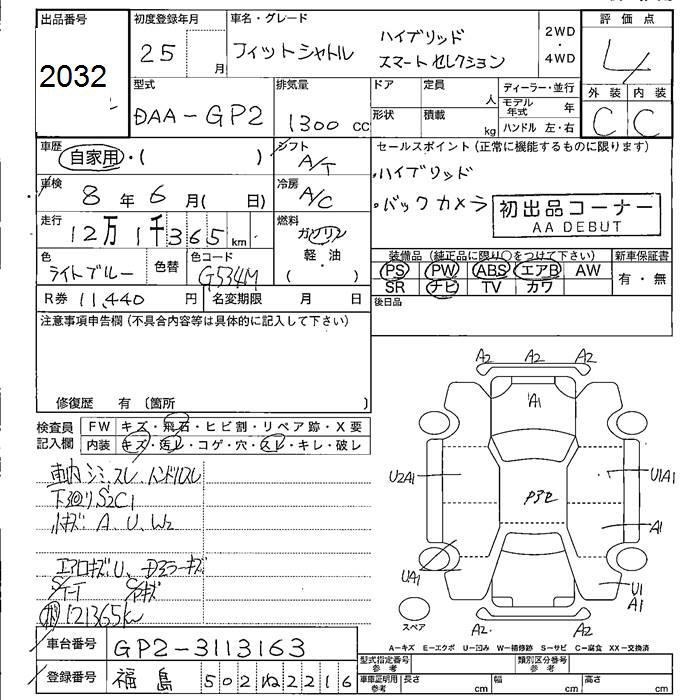 出品番号
2032
初度登録年月
25 月
車名・グレード
フィットシャトル ハイブリッド
スマートセレクション
2WD
・
4WD
評価点
4
外装 内装
C C
型式
DAA-GP2
排気量
1300 cc
ドア 定員 人
形状 積載 kg
ディーラー・並行
モデル年式 年
ハンドル 左・右
車歴
自家用・( )
シフト
A/T
セールスポイント(正常に機能するものに限ります)
・ハイブリッド
・バックカメラ
初出品コーナー
AA DEBUT
車検
8年 6月( 日)
冷房
A/C
走行
12万1千365km
燃料
ガソリン
軽・油
( )
色
ライトブルー
色替
色コード
G534M
装備品(純正品に限り○をつけて下さい)
新車保証書
PS PW ABS エアB AW
SR ナビ TV カワ
有・無
R券 11,440 円
名変期限 月 日
後日品
注意事項申告欄(不具合内容等は具体的に記入して下さい)
修復歴 有 〔箇所 〕
検査員記入欄
FW キズ・飛石・ヒビ割・リペア跡・X要
内装 キズ・汚レ・コゲ・穴・スレ・キレ・破レ
車内シミ、スレ ハンドルスレ
下廻りS2C1
小キズ A、U、W2
エアロキズU、Dミラーキズ
121365km
A2 A2 A2
A1
U2A1
U1A1
A1
UA1
U1
A1
スペア
A2 A2
A-キズ E-エクボ U-凹み W-補修跡 S-サビ C-腐食 XX-交換済
車台番号
GP2-3113163
登録番号
福島 502 ね 2216
型式指定番号参考
類別区分番号参考
車庫証明用参考
長さ cm
幅 cm
高さ cm